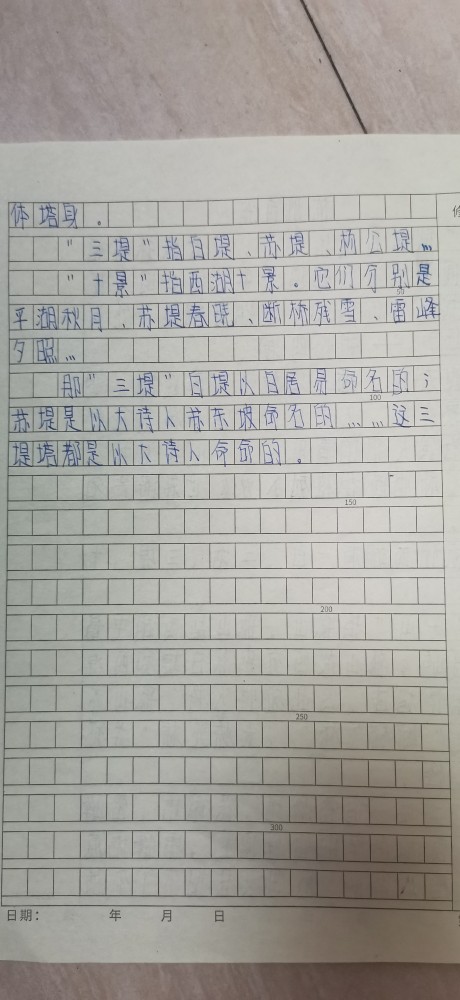 体塔身。
"三堤"指白堤、苏堤、杨公堤…
"十景"指西湖十景。它们分别是
平湖秋月、苏堤春晓、断桥残雪、雷峰
夕照…
那"三堤"白堤以白居易命名的；
100
苏堤是以大诗人苏东坡命名的……这三
堤塔都是以大诗人命命的。
150
200
250
300
日期： 年 月 日